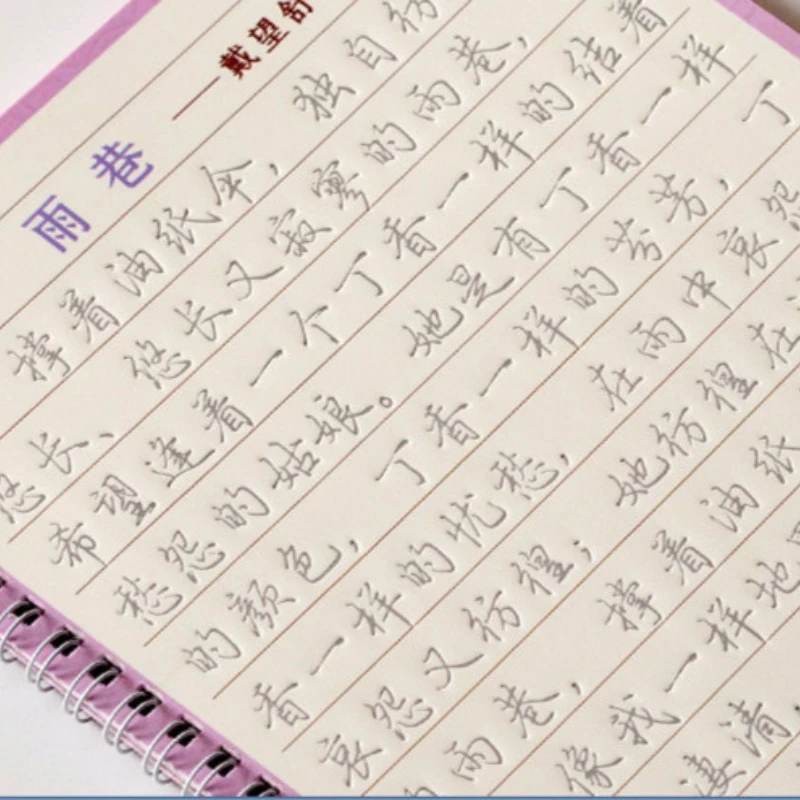 雨巷
——戴望舒
撑着油纸伞，独自彷
悠长、悠长又寂寥的雨巷，
希望逢着一个丁香一样的结着
愁怨的姑娘。她是有丁香一样
的颜色，丁香一样的芬芳，丁
香一样的忧愁，在雨中哀怨
哀怨又彷徨；她彷徨在
的雨巷，撑着油纸
像我一样地
凄清，